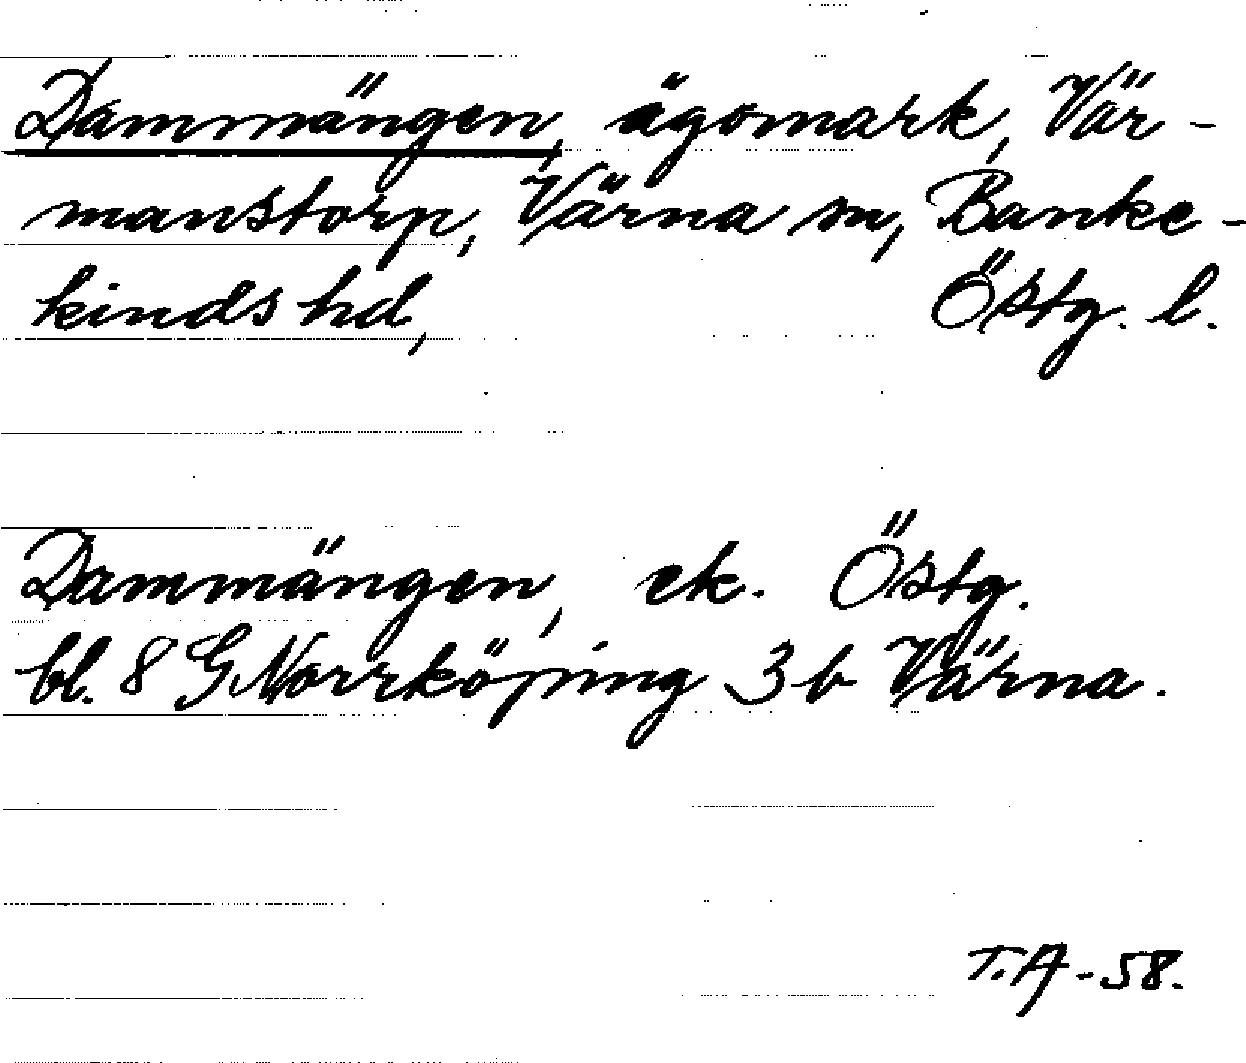 Dammängen, ägomark, Vär-
manstorp, Värna sn, Banke-
kinds hd, Östg. l.
Dammängen, ek. Östg.
bl. 8 G Norrköping 3 b Värna.
T.A -58.